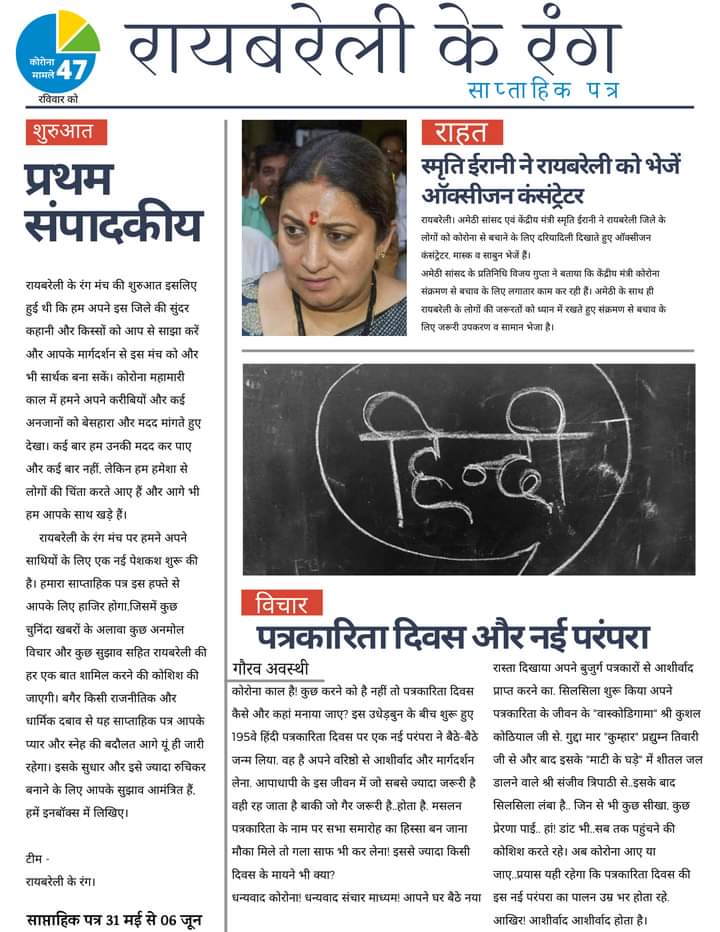 रायबरेली के रंग
साप्ताहिक पत्र
कोरोना
मामले 47
रविवार को
शुरुआत
प्रथम
संपादकीय
रायबरेली के रंग मंच की शुरुआत इसलिए
हुई थी कि हम अपने इस जिले की सुंदर
कहानी और किस्सों को आप से साझा करें
और आपके मार्गदर्शन से इस मंच को और
भी सार्थक बना सकें। कोरोना महामारी
काल में हमने अपने करीबियों और कई
अनजानों को बेसहारा और मदद मांगते हुए
देखा। कई बार हम उनकी मदद कर पाए
और कई बार नहीं, लेकिन हम हमेशा से
लोगों की चिंता करते आए हैं और आगे भी
हम आपके साथ खड़े हैं।
रायबरेली के रंग मंच पर हमने अपने
साथियों के लिए एक नई पेशकश शुरू की
है। हमारा साप्ताहिक पत्र इस हफ्ते से
आपके लिए हाजिर होगा,जिसमें कुछ
चुनिंदा खबरों के अलावा कुछ अनमोल
विचार और कुछ सुझाव सहित रायबरेली की
हर एक बात शामिल करने की कोशिश की
जाएगी। बगैर किसी राजनीतिक और
धार्मिक दबाव से यह साप्ताहिक पत्र आपके
प्यार और स्नेह की बदौलत आगे यूं ही जारी
रहेगा। इसके सुधार और इसे ज्यादा रुचिकर
बनाने के लिए आपके सुझाव आमंत्रित हैं.
हमें इनबॉक्स में लिखिए।
टीम -
रायबरेली के रंग।
साप्ताहिक पत्र 31 मई से 06 जून
राहत
स्मृति ईरानी ने रायबरेली को भेजें
ऑक्सीजन कंसंट्रेटर
रायबरेली। अमेठी सांसद एवं केंद्रीय मंत्री स्मृति ईरानी ने रायबरेली जिले के
लोगों को कोरोना से बचाने के लिए दरियादिली दिखाते हुए ऑक्सीजन
कंसंट्रेटर, मास्क व साबुन भेजें हैं।
अमेठी सांसद के प्रतिनिधि विजय गुप्ता ने बताया कि केंद्रीय मंत्री कोरोना
संक्रमण से बचाव के लिए लगातार काम कर रही हैं। अमेठी के साथ ही
रायबरेली के लोगों की जरूरतों को ध्यान में रखते हुए संक्रमण से बचाव के
लिए जरूरी उपकरण व सामान भेजा है।
हिन्दी
विचार
पत्रकारिता दिवस और नई परंपरा
गौरव अवस्थी
कोरोना काल है! कुछ करने को है नहीं तो पत्रकारिता दिवस
कैसे और कहां मनाया जाए? इस उधेड़बुन के बीच शुरू हुए
195वे हिंदी पत्रकारिता दिवस पर एक नई परंपरा ने बैठे-बैठे
जन्म लिया. वह है अपने वरिष्ठो से आशीर्वाद और मार्गदर्शन
लेना. आपाधापी के इस जीवन में जो सबसे ज्यादा जरूरी है
वही रह जाता है बाकी जो गैर जरूरी है..होता है. मसलन
पत्रकारिता के नाम पर सभा समारोह का हिस्सा बन जाना
मौका मिले तो गला साफ भी कर लेना! इससे ज्यादा किसी
दिवस के मायने भी क्या?
धन्यवाद कोरोना! धन्यवाद संचार माध्यम! आपने घर बैठे नया
रास्ता दिखाया अपने बुजुर्ग पत्रकारों से आशीर्वाद
प्राप्त करने का. सिलसिला शुरू किया अपने
पत्रकारिता के जीवन के "वास्कोडिगामा" श्री कुशल
कोठियाल जी से. गुद्दा मार "कुम्हार" प्रद्युम्न तिवारी
जी से और बाद इसके "माटी के घड़े" में शीतल जल
डालने वाले श्री संजीव त्रिपाठी से..इसके बाद
सिलसिला लंबा है.. जिन से भी कुछ सीखा. कुछ
प्रेरणा पाई.. हां! डांट भी..सब तक पहुंचने की
कोशिश करते रहे। अब कोरोना आए या
जाए..प्रयास यही रहेगा कि पत्रकारिता दिवस की
इस नई परंपरा का पालन उम्र भर होता रहे.
आखिर! आशीर्वाद आशीर्वाद होता है।